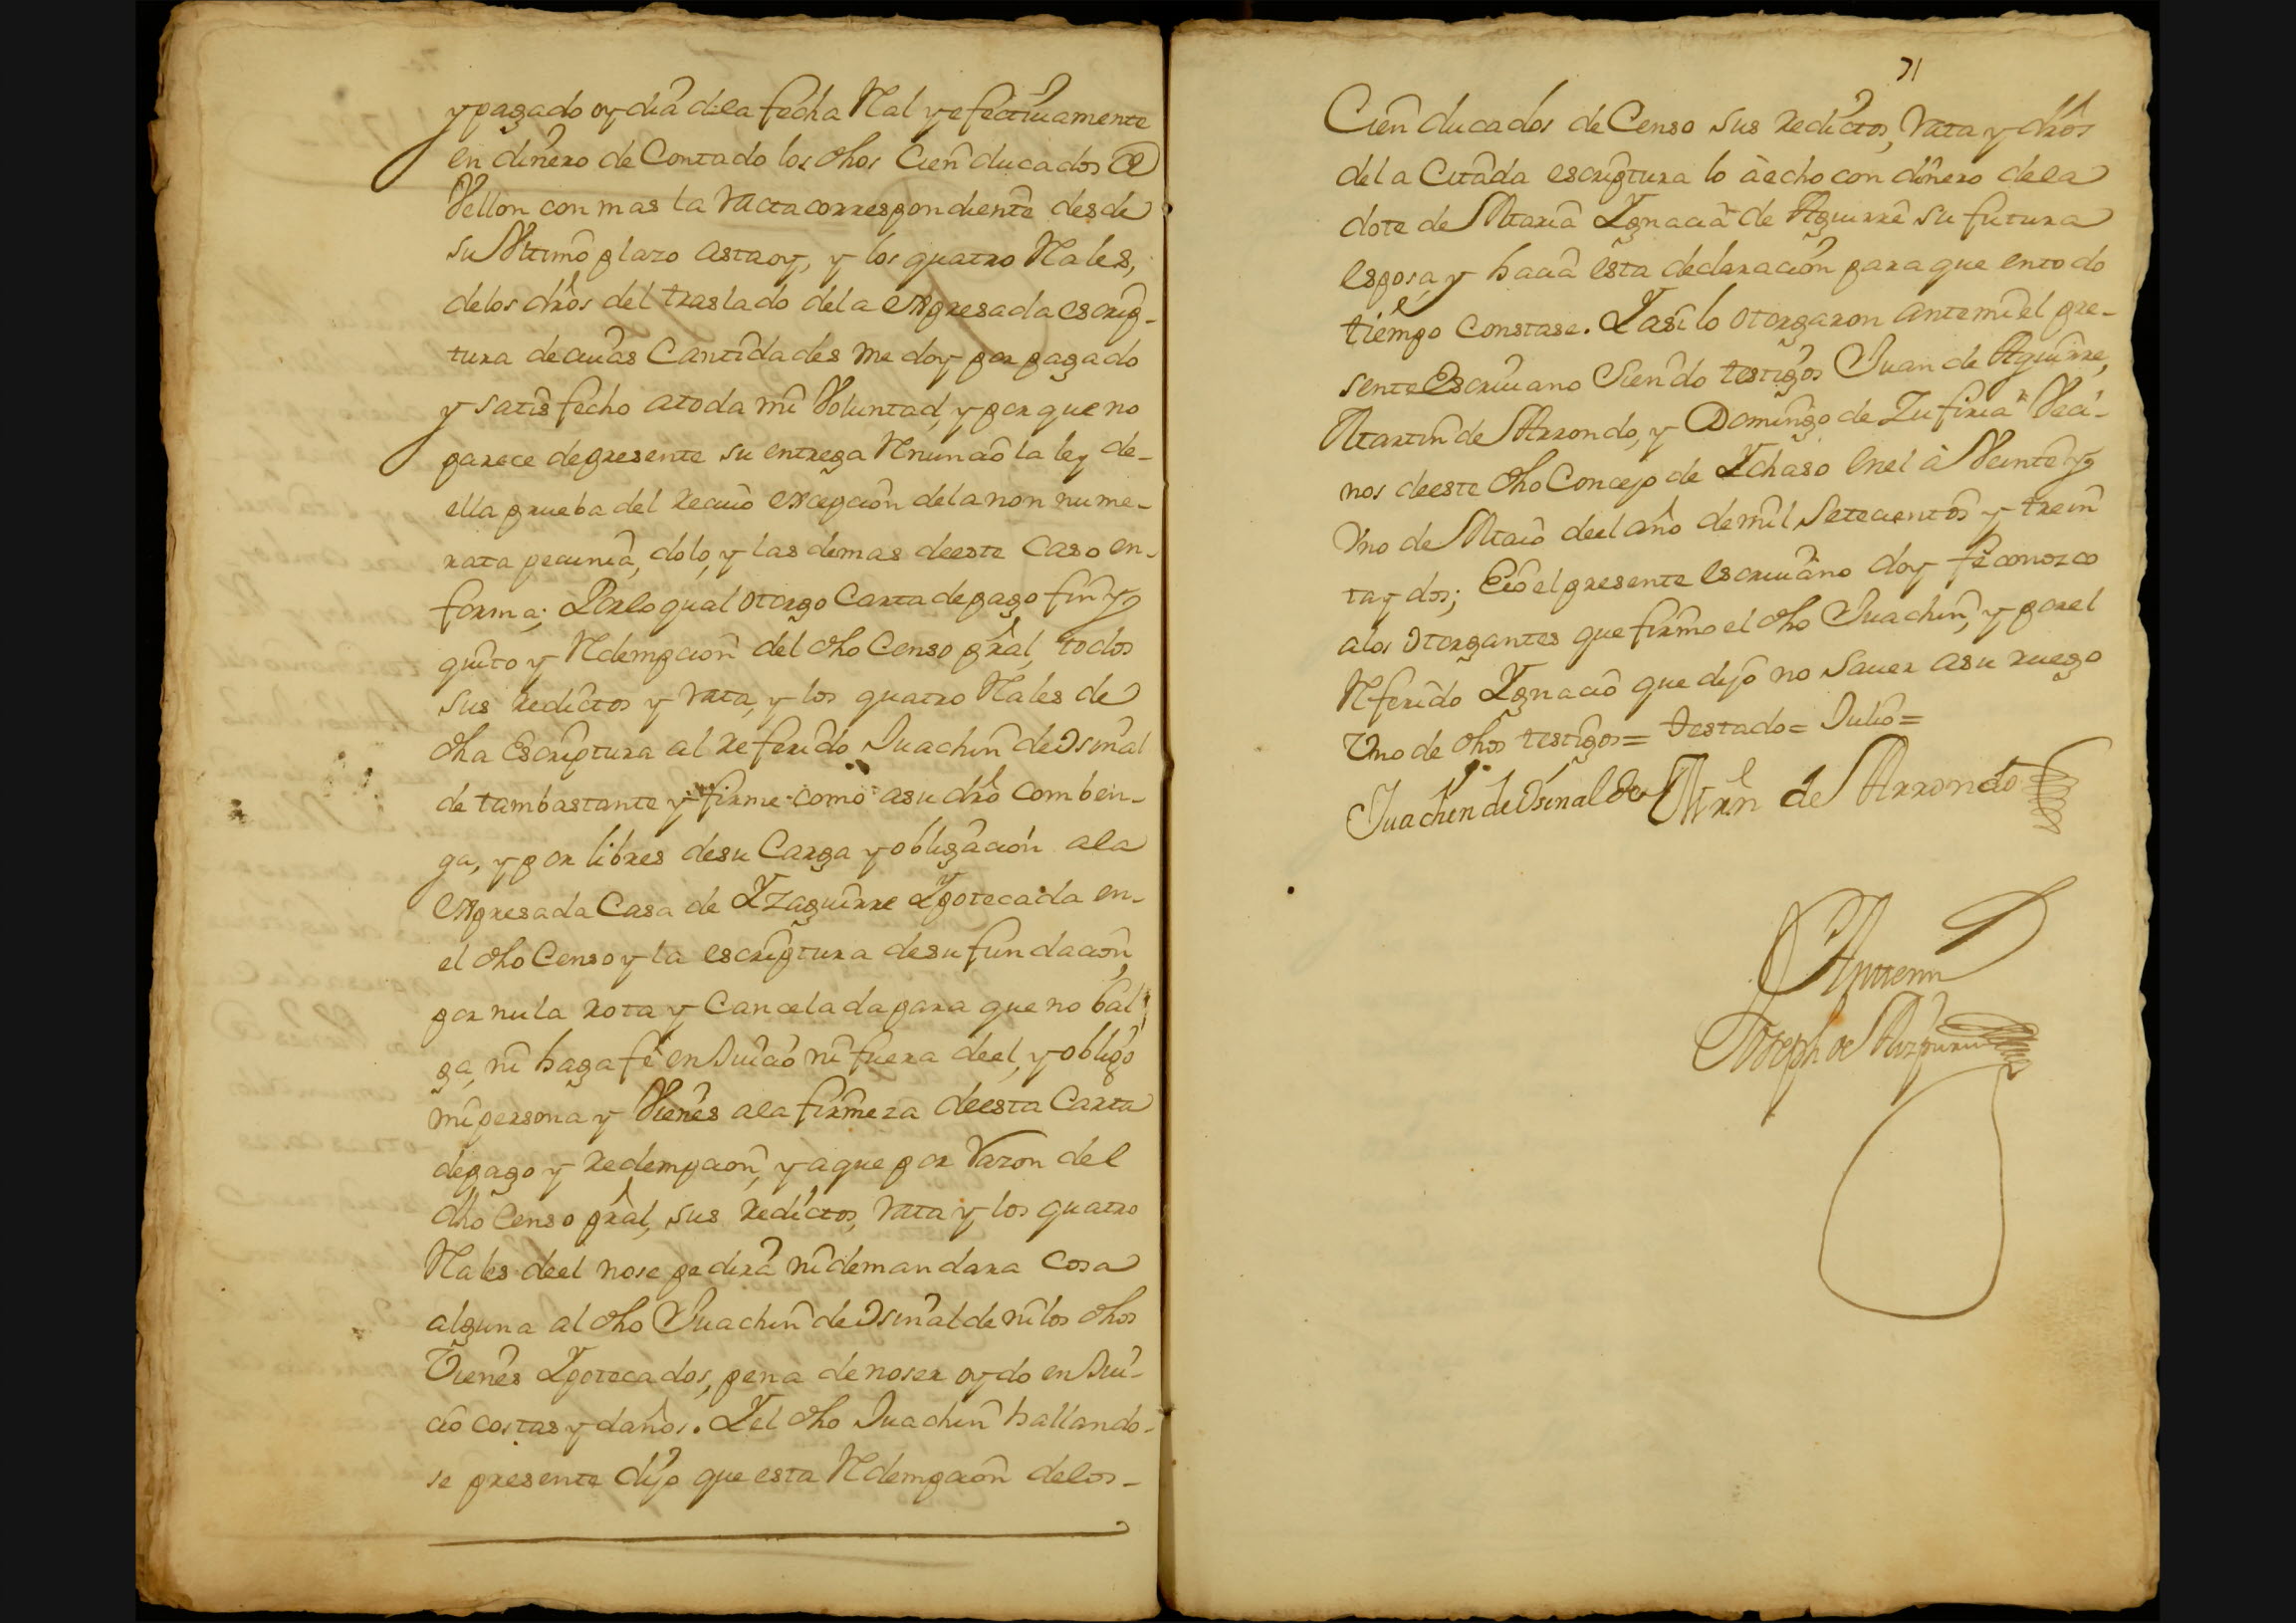 y pagado oy dia dela fecha Real y efectiuamente
en dinero de Contado los dhos Cien ducados de
Vellon con mas la rata correspondiente desde
su Vltimo plazo asta oy, y los quatro Reales,
delos dros del traslado dela expresada escrip-
tura de cuias Cantidades me doy por pagado
y satisfecho a toda mi Voluntad, y por que no
parece de presente su entrega Renuncio la ley de-
ella prueba del Recuio excepcion dela non nume-
rata pecunia, dolo, y las demas deeste Caso en-
forma; Por lo qual otorgo Carta de pago fin y
quito y Redempcion del dho Censo pral, todos
sus Redictos y rata, y los quatro Reales de
dha Escriptura al Referido Juachin de Osinal
de tam bastante y firme como a su dro comben-
ga, y por libres de su Carga y obligacion a la
expresada Casa de Yzaguirre Ypotecada en-
el dho Censo y la escriptura de su fundacion,
por nula rota y Cancelada para que no bal-
ga, ni haga fe en Juicio ni fuera de el, y obligo
mi persona y Vienes a la firmeza deesta Carta
de pago y Redempcion, y a que por razon del
dho Censo pral, sus Redictos, rata y los quatro
Reales de el no se pedira ni demandara Cosa
alguna al dho Juachin de Osinalde ni los dhos
Vienes Ypotecados, pena de no ser oydo en Jui-
cio costas y daños. Y el dho Juachin hallando-
se presente dijo que esta Redempcion delos-
71
Cien ducados de Censo sus Redictos, rata y dros
dela Citada escriptura lo à echo con dinero dela
dote de Maria Ygnacia de Aguirre su futura
esposa, y hacia esta declaracion para que en todo
tiempo constase. Y asi lo otorgaron ante mi el pre-
sente Escriuano Siendo testigos Juan de Aguirre,
Martin de Arrondo, y Domingo de Zufiria Veci-
nos deeste dho Concejo de Ychaso en el à Veinte y
Vno de Maio de el año de mil Setecientos y trein
ta y dos; E io el presente escriuano doy fe conozco
a los Otorgantes que firmo el dho Juachin, y por el
Referido Ygnacio que dijo no Sauer a su ruego
Vno de dhos testigos= Testado= Julio=
Juachin de Osinalde Mrn de Arrondo
Ante mi
Joseph de Aizpuru